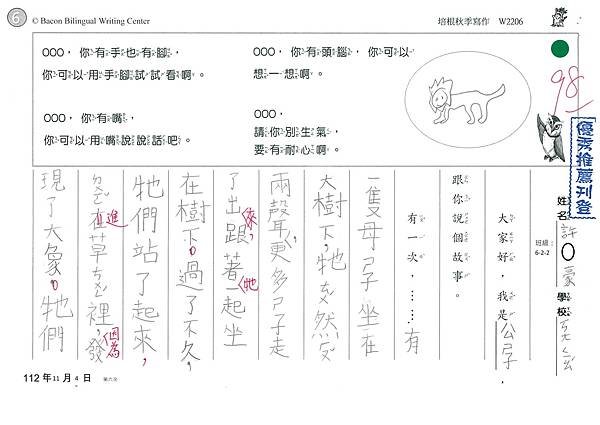 6
© Bacon Bilingual Writing Center
培根秋季寫作 W2206
OOO，你有手也有腳，
你可以用手腳試試看啊。
OOO，你有頭腦，你可以
想一想啊。
OOO，你有嘴，
你可以用嘴說說話吧。
OOO，
請你別生氣，
要有耐心啊。
98
優秀推薦刊登
姓名：許O豪
班級：6-2-2
學校：
大家好，我是公ㄕ，
跟你說個故事。
有一次，……有
一隻母ㄕ坐在
大樹下，牠ㄊㄨ然
兩聲，更多ㄕ子走
了出來，跟著牠一起坐
在樹下。過了不久，
牠們站了起來，
走進草ㄘㄨㄥ裡，因為發
現了大象。牠們
112年11月4日
第六次